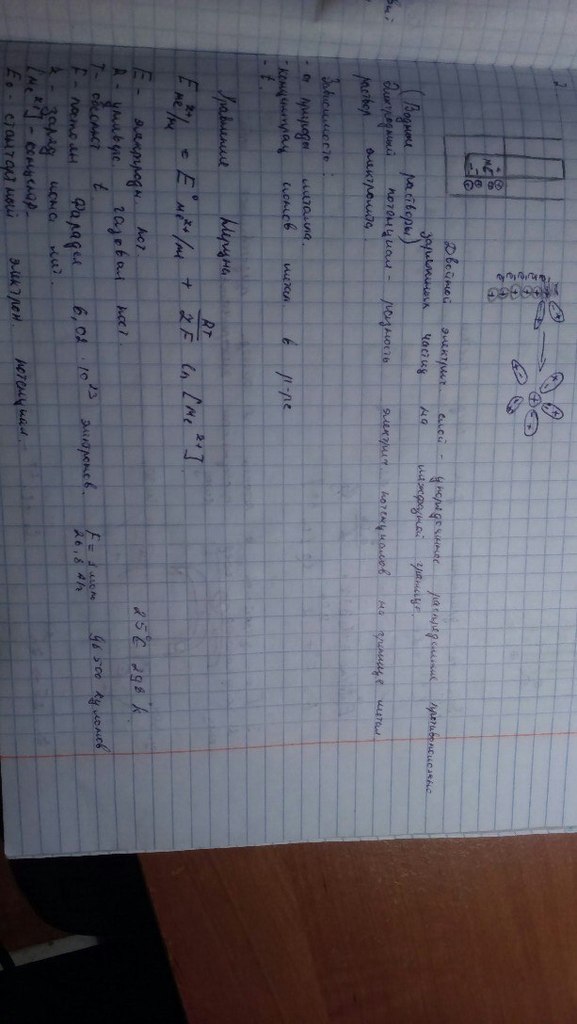 Двойной электрич. слой - упорядоченное распределение противоположно
заряженных частиц на межфазной границе.
(Водные растворы)
Электродный потенциал - разность электрич. потенциалов на границе метал
раствор электролита.
Зависимость:
- от природы металла.
- концентрац ионов метал в р-ре
- t.
Уравнение Нернста
E Me^z+/м = E° Me^z+/м + RT/zF ln [Me^z+]
E - электродн. пот 25°C 298 K
R - универс газовая пост
T - абсолют t
F - постоян Фарадея 6,02 · 10^23 электронов. F = 1 моль 96500 кулонов
26,8 А/ч
z - заряд иона мет.
[Me^z+] - концентр.
E₀ - стантартный электрон. потенциал.